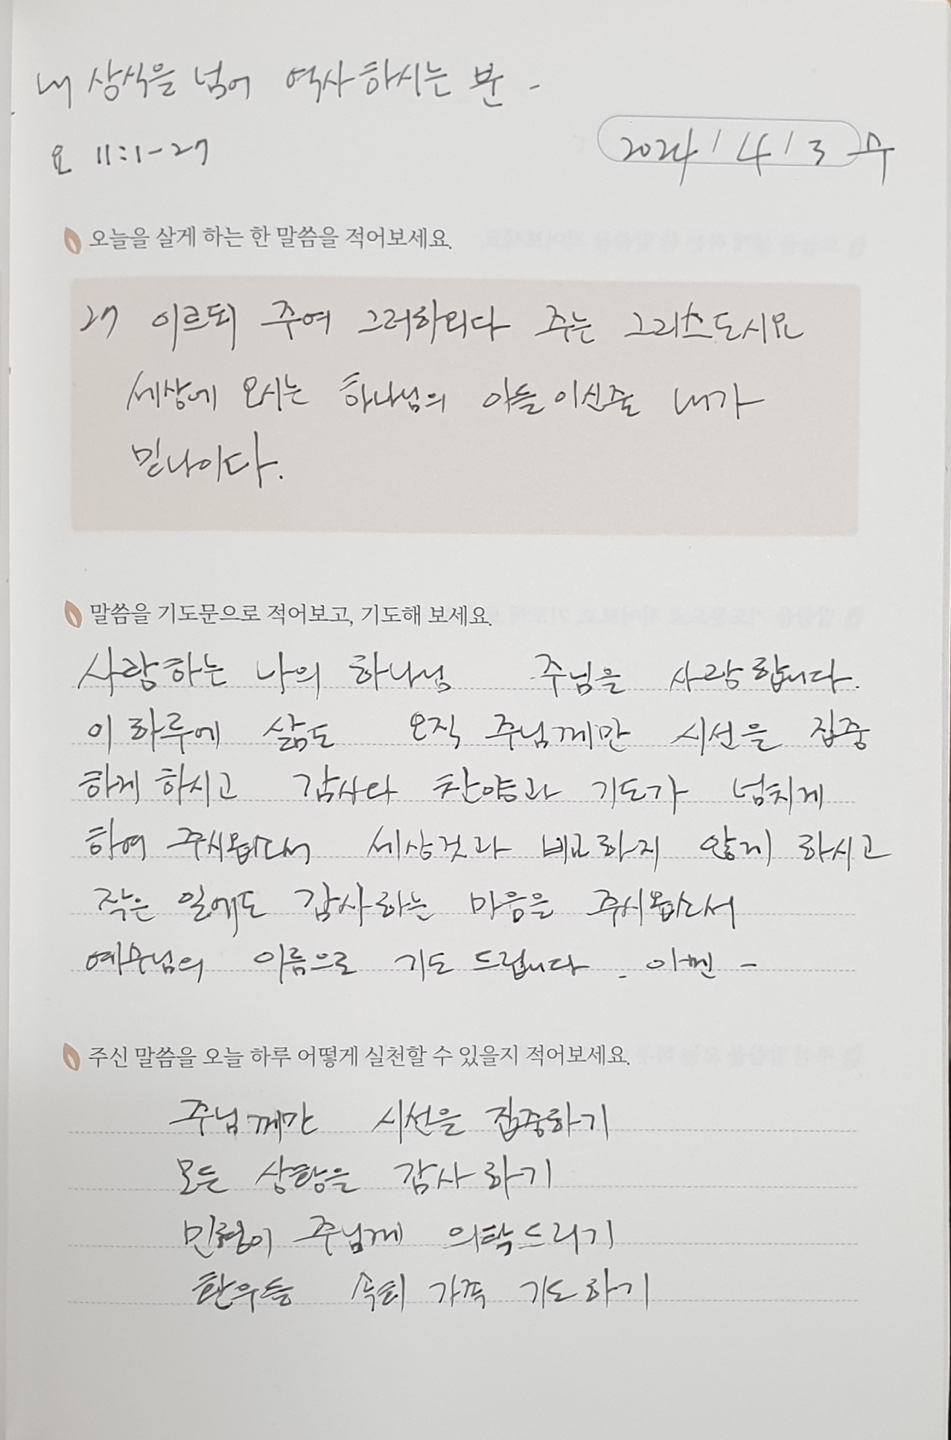 내 상식을 넘어 역사하시는 분 -
요 11:1-27
2024 / 4 / 3 수
오늘을 살게 하는 한 말씀을 적어보세요.
27 이르되 주여 그러하외다 주는 그리스도시요
세상에 오시는 하나님의 아들이신줄 내가
믿나이다.
말씀을 기도문으로 적어보고, 기도해 보세요.
사랑하는 나의 하나님 주님을 사랑합니다.
이 하루에 삶도 오직 주님께만 시선을 집중
하게 하시고 감사와 찬양과 기도가 넘치게
하여 주시옵소서 세상것과 비교하지 않게 하시고
작은 일에도 감사하는 마음을 주시옵소서
예수님의 이름으로 기도 드립니다. 아멘 -
주신 말씀을 오늘 하루 어떻게 실천할 수 있을지 적어보세요.
주님께만 시선을 집중하기
모든 상황을 감사하기
민형이 주님께 의탁드리기
환우들 가족 기도하기